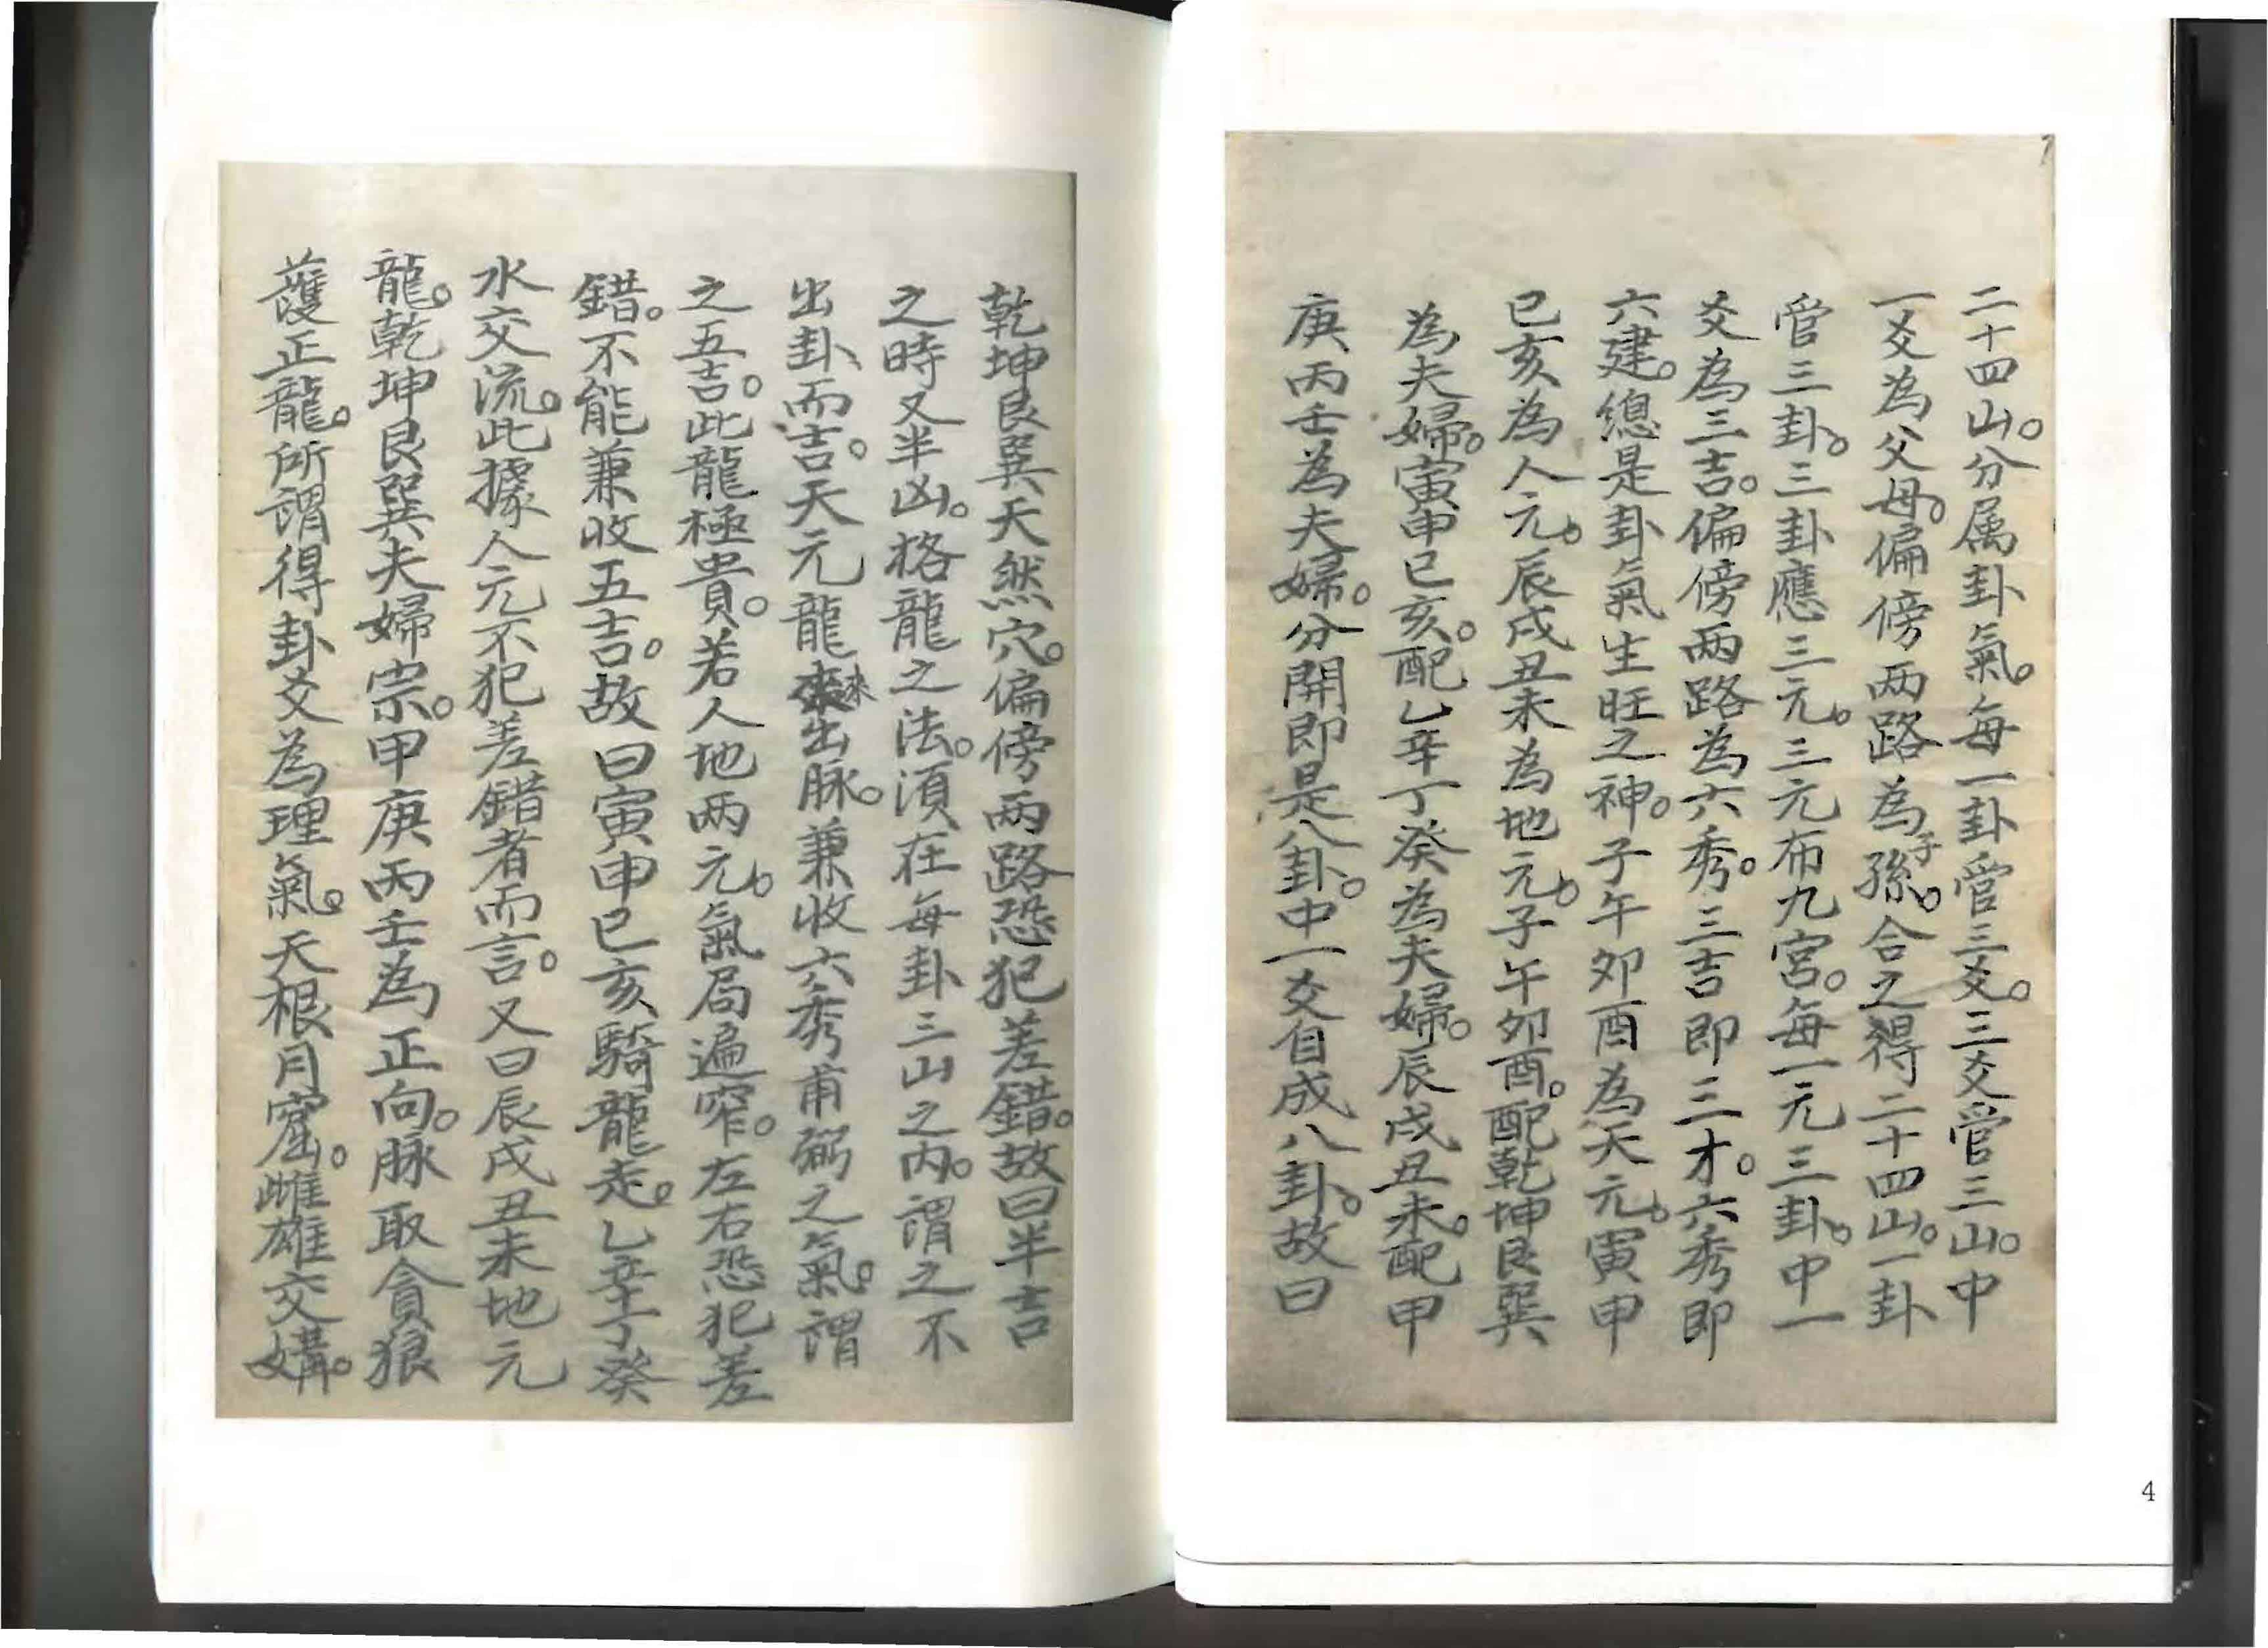 二十四山。分属卦氣。每一卦管三爻。三爻管三山。中
一爻為父母。偏傍两路為子孫。合之得二十四山。一卦
管三卦。三卦應三元。三元布九宮。每一元三卦。中一
爻為三吉。偏傍两路為六秀。三吉即三才。六秀即
六建。總是卦氣生旺之神。子午卯酉為天元。寅申
巳亥為人元。辰戌丑未為地元。子午卯酉。配乾坤艮巽
為夫婦。寅申巳亥。配乙辛丁癸為夫婦。辰戌丑未。配甲
庚丙壬為夫婦。分開即是八卦。中一爻自成八卦。故曰
4
乾坤艮巽天然穴。偏傍两路恐犯差錯。故曰半吉
之時又半凶。格龍之法。須在每卦三山之内。謂之不
出卦而吉。天元龍來出脉。兼收六秀甫弼之氣。謂
之五吉。此龍極貴。若人地两元。氣局遍窄。左右恐犯差
錯。不能兼收五吉。故曰寅申巳亥騎龍走。乙辛丁癸
水交流。此據人元不犯差錯者而言。又曰辰戌丑未地元
龍。乾坤艮巽夫婦宗。甲庚丙壬為正向。脉取貪狼
護正龍。所謂得卦爻為理氣。天根月窟。雌雄交媾。